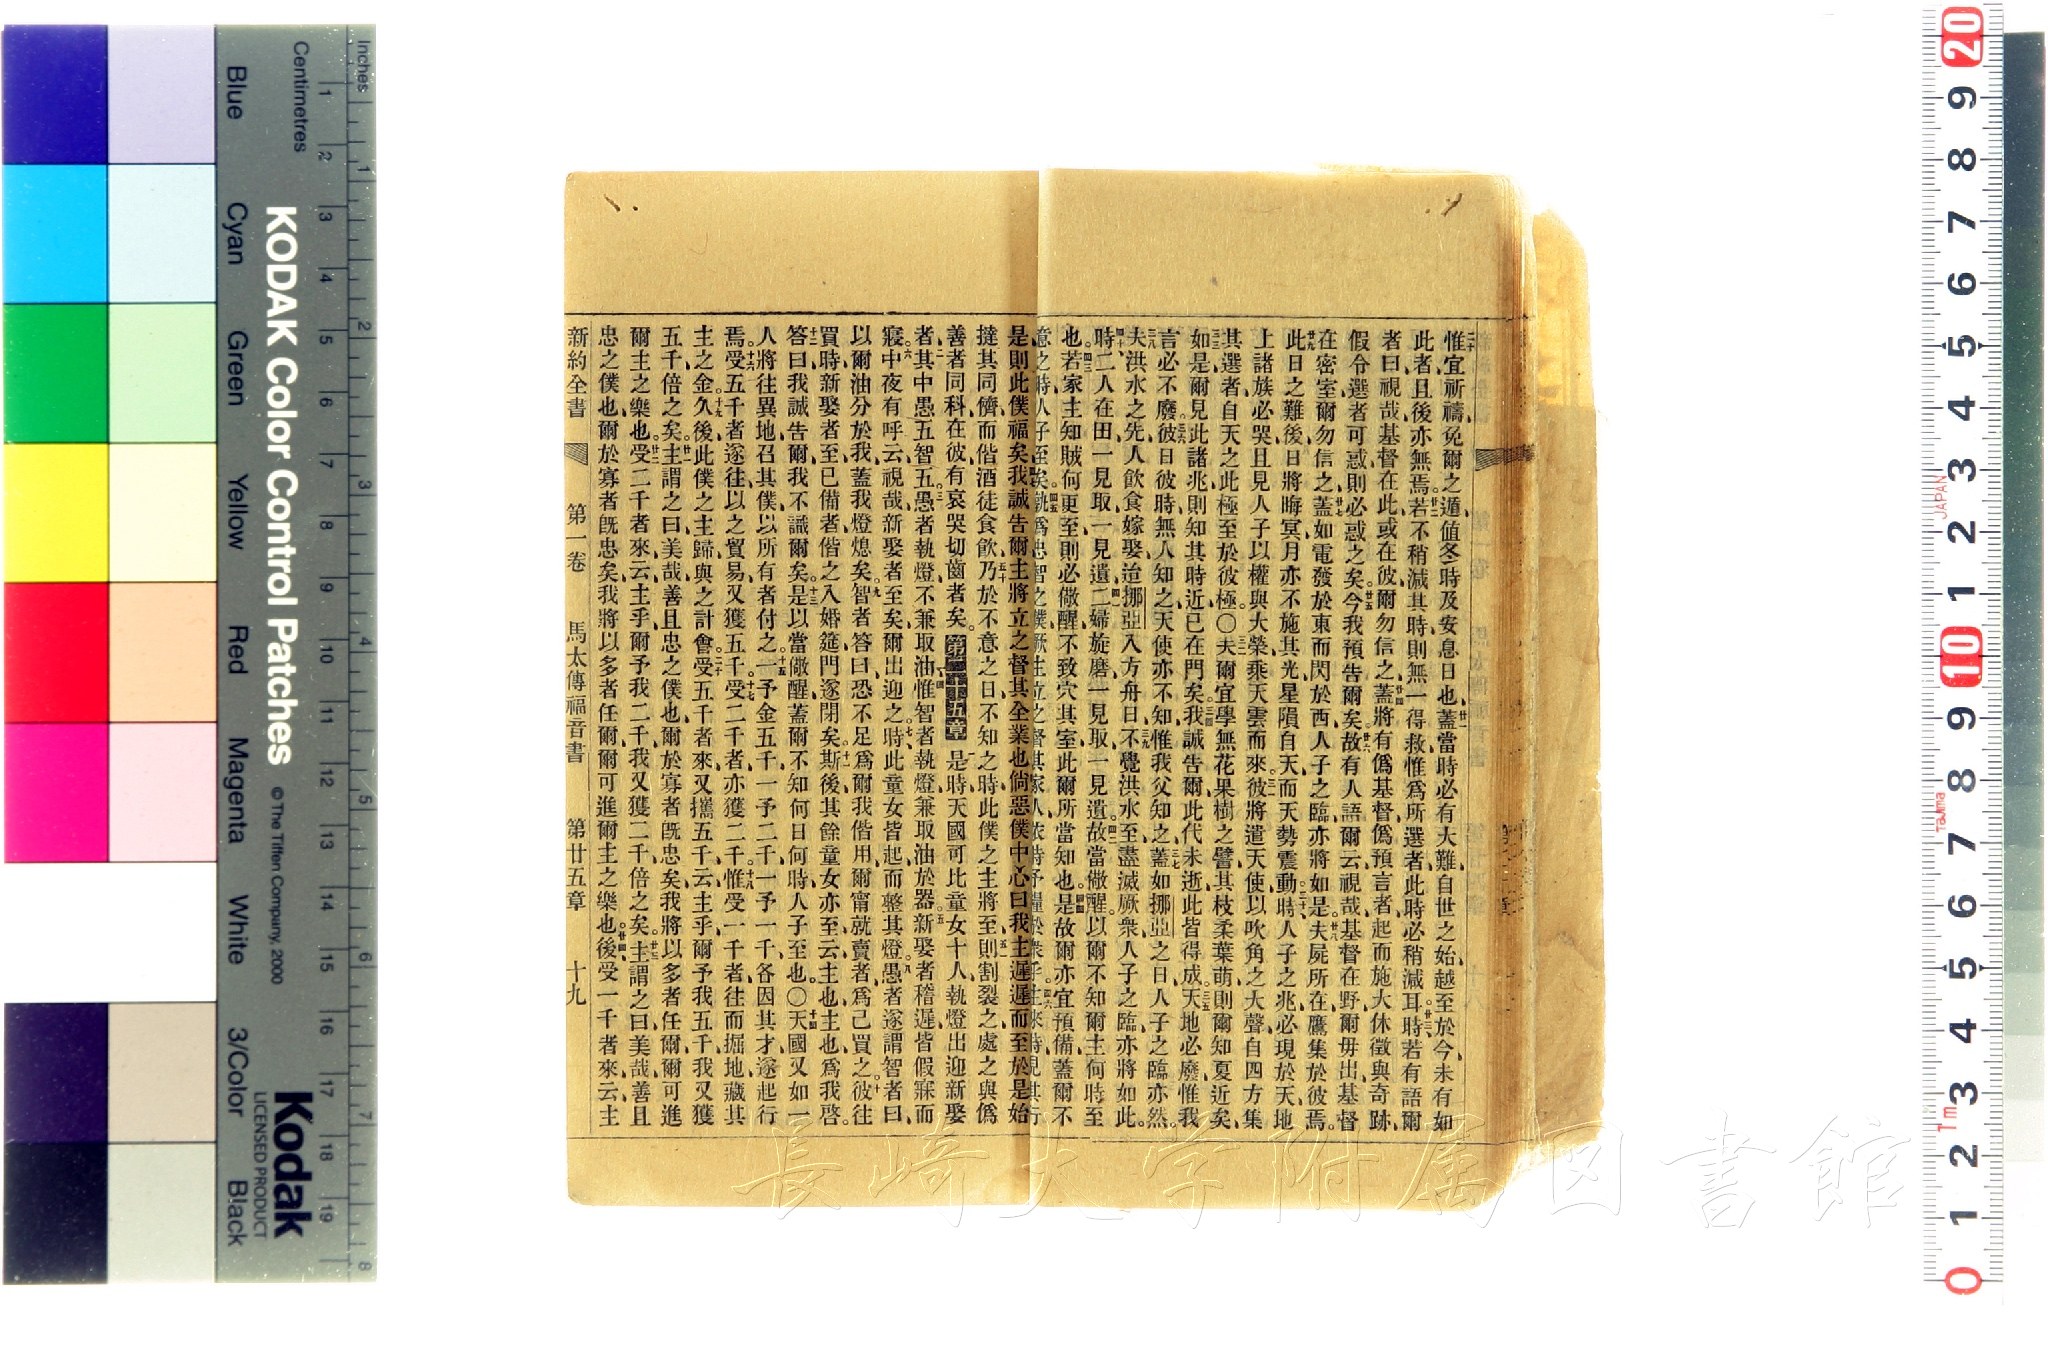 惟宜祈禱、免爾之遁值冬時及安息日也、蓋當時必有大難、自世之始越至於今、未有如
此者、且後亦無焉、若不稍減其時、則無一得救、惟為所選者、此時必稍減耳、時若有語爾
者曰、視哉基督在此、或在彼、爾勿信之、蓋將有偽基督、偽預言者起、而施大休徵與奇跡、
假令選者可惑、則必惑之矣、今我預告爾矣、故有人語爾云、視哉基督在野、爾毋出、基督
在密室、爾勿信之、蓋如電發於東、而閃於西、人子之臨亦將如是、夫屍所在、鷹集於彼焉。
此日之難後、日將晦冥、月亦不施其光、星隕自天、而天勢震動、時人子之兆必現於天、地
上諸族必哭、且見人子以權與大榮、乘天雲而來、彼將遣天使以吹角之大聲、自四方集
其選者、自天之此極、至於彼極。〇夫爾宜學無花果樹之譬、其枝柔葉萌、則爾知夏近矣、
如是爾見此諸兆、則知其時近已在門矣、我誠告爾、此代未逝、此皆得成、天地必廢、惟我
言必不廢、彼日彼時、無人知之、天使亦不知、惟我父知之、蓋如挪亞之日、人子之臨亦然。
夫洪水之先、人飲食嫁娶、迨挪亞入方舟日、不覺洪水至、盡滅厥衆、人子之臨亦將如此。
時二人在田、一見取、一見遺、二婦旋磨、一見取、一見遺、故當儆醒、以爾不知爾主何時至
也、若家主知賊何更至、則必儆醒、不致穴其室、此爾所當知也、是故爾亦宜預備、蓋爾不
意之時、人子至矣、
是則此僕福矣、我誠告爾、主將立之督其全業也、倘惡僕中心曰、我主遲遲而至、於是始
撻其同儕、而偕酒徒食飲、乃於不意之日、不知之時、此僕之主將至、則割裂之、處之與偽
善者同科、在彼有哀哭切齒者矣。第二十五章 是時天國可比童女十人、執燈出迎新娶
者、其中愚五智五、愚者執燈不兼取油、惟智者執燈兼取油於器、新娶者稽遲、皆假寐而
寢、中夜有呼云、視哉、新娶者至矣、爾出迎之、時此童女皆起而整其燈、愚者遂謂智者曰、
以爾油分於我、蓋我燈熄矣、智者答曰、恐不足為爾我偕用、爾甯就賣者為己買之、彼往
買時、新娶者至、已備者偕之入婚筵、門遂閉矣、斯後其餘童女亦至云、主也主也、為我啓。
答曰、我誠告爾、我不識爾矣、是以當儆醒、蓋爾不知何日何時人子至也。〇天國又如一
人將往異地、召其僕、以所有者付之、一予金五千、一予二千、一予一千、各因其才、遂起行
焉、受五千者、遂往以之貿易、又獲五千、受二千者、亦獲二千、惟受一千者、往而掘地、藏其
主之金、久後此僕之主歸、與之計會、受五千者來、又攜五千云、主乎、爾予我五千、我又獲
五千倍之矣、主謂之曰、美哉、善且忠之僕也、爾於寡者旣忠矣、我將以多者任爾、爾可進
爾主之樂也、受二千者來云、主乎、爾予我二千、我又獲二千倍之矣、主謂之曰、美哉、善且
忠之僕也、爾於寡者旣忠矣、我將以多者任爾、爾可進爾主之樂也、後受一千者來云、主
新約全書 第一卷 馬太傳福音書 第廿五章 十九
Inches
Centimetres
Blue Cyan Green Yellow Red Magenta White 3/Color Black
KODAK Color Control Patches © The Tiffen Company, 2000
Kodak
LICENSED PRODUCT
JAPAN
Tajima
長崎大学附属図書館